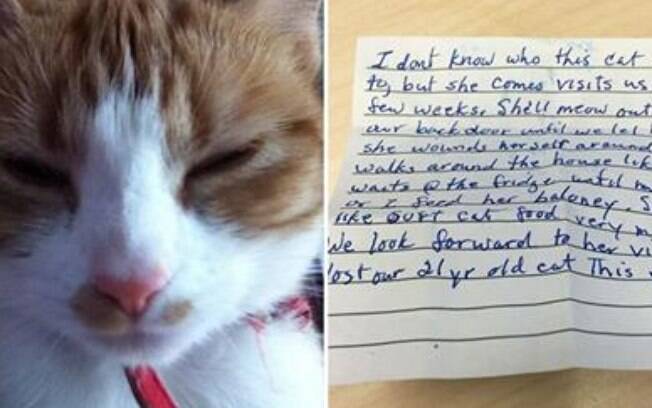 I dont know who this cat
to, but she comes visits us
few weeks. She'll meow out
our back door until we let h
she wounds herself around
walks around the house lik
waits @ the fridge until m
or I feed her baloney. S
like our cat food very m
We look forward to her vi
lost our 21 yr old cat This